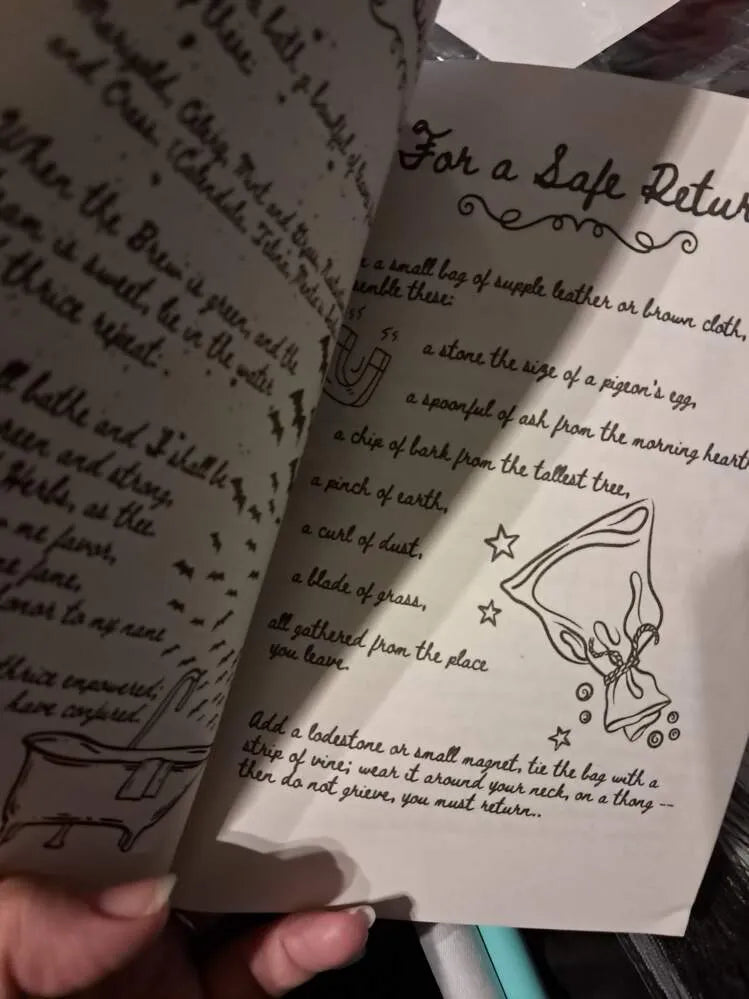 bath, a handful of
these:
Marigold, Celery, Mint and
and Cress. (Calendula,
When the Brew is green, and the
is sweet, lie in the water
thrice repeat:
bathe and I shall be
green and strong,
Herbs, as thee
me favor,
me fame,
honor to my name
thrice empowered;
have conjured.
For a Safe Retur
a small bag of supple leather or brown cloth,
semble these:
a stone the size of a pigeon's egg,
a spoonful of ash from the morning hearth
a chip of bark from the tallest tree,
a pinch of earth,
a curl of dust,
a blade of grass,
all gathered from the place
you leave.
Add a lodestone or small magnet, tie the bag with a
strip of vine; wear it around your neck, on a thong --
then do not grieve, you must return..